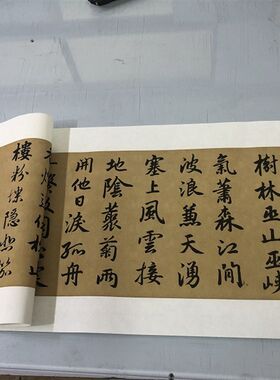 樹林巫山巫峽
氣蕭森江間
波浪兼天湧
塞上風雲接
地陰叢菊兩
開他日淚孤舟
爐違伏枕山
樓粉堞隱悲笳